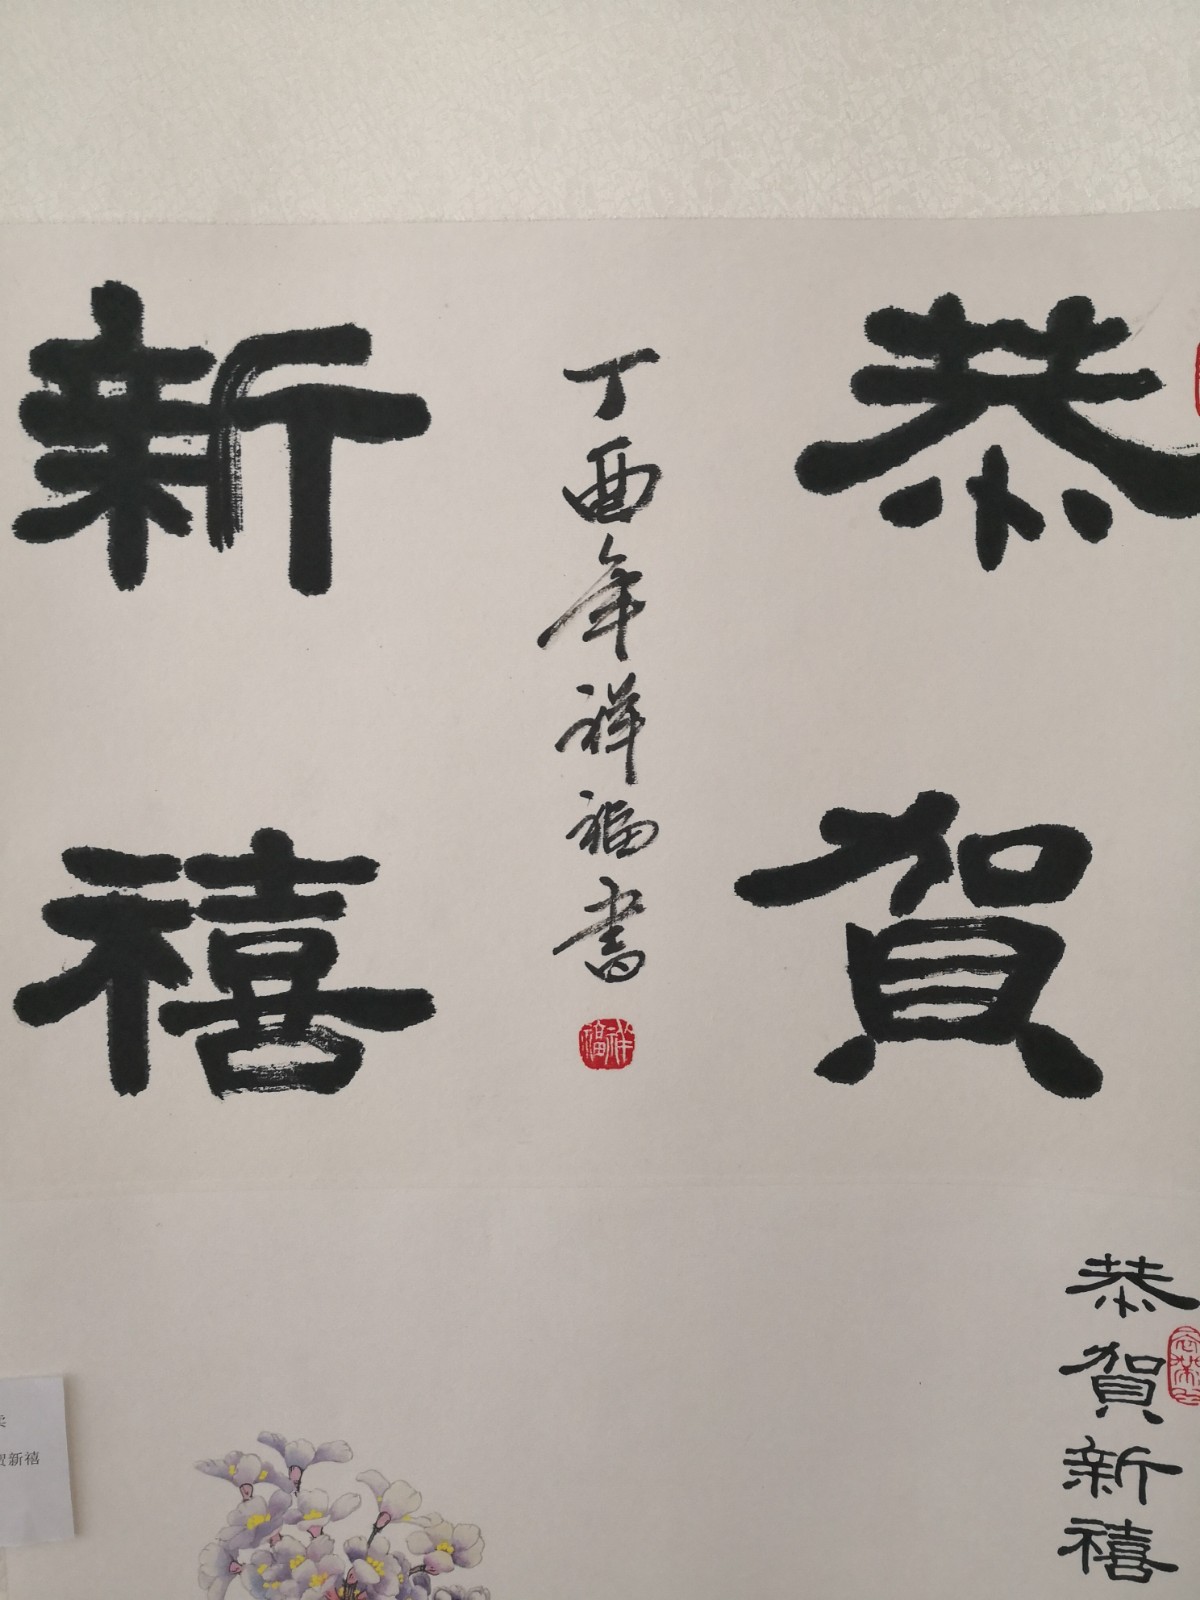 恭賀
新禧
丁酉年祥福書
祥福
恭賀新禧
贺新禧